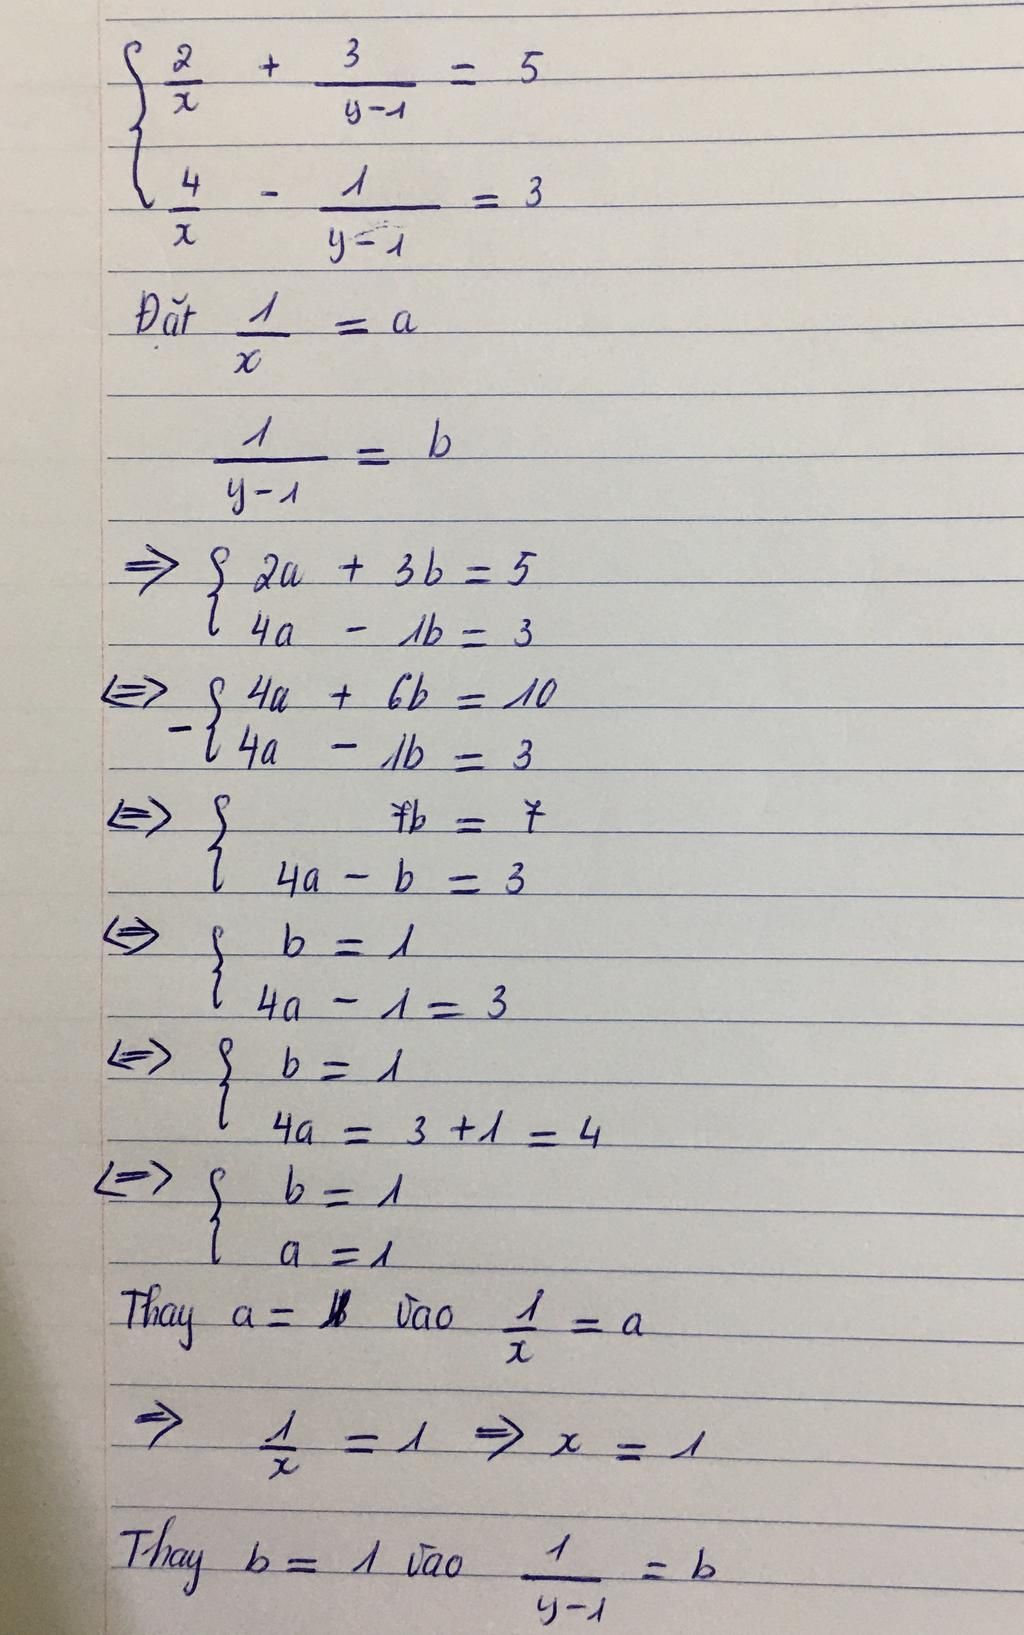 2/x + 3/(y-1) = 5
4/x - 1/(y-1) = 3
Đặt 1/x = a
1/(y-1) = b
⇒ { 2a + 3b = 5
4a - 1b = 3
⇔ { 4a + 6b = 10
- 4a - 1b = 3
⇔ { 7b = 7
4a - b = 3
⇔ { b = 1
4a - 1 = 3
⇔ { b = 1
4a = 3 + 1 = 4
⇔ { b = 1
a = 1
Thay a = 1 vào 1/x = a
⇒ 1/x = 1 ⇒ x = 1
Thay b = 1 vào 1/(y-1) = b